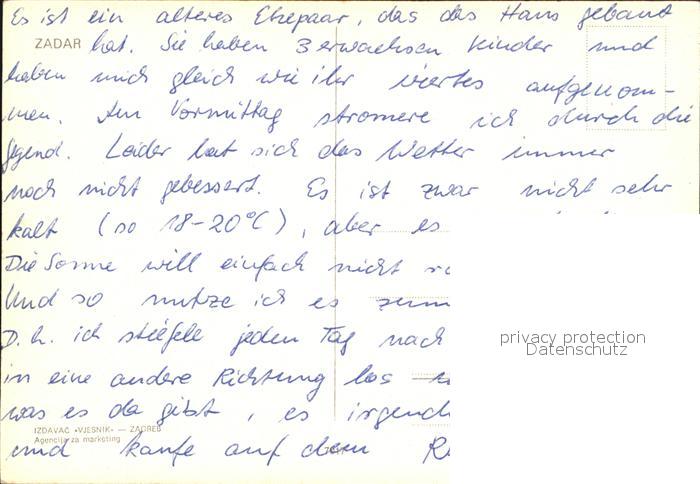 Es ist ein älteres Ehepaar, das das Haus gebaut
ZADAR
hat. Sie haben 3 erwachsen Kinder und
haben mich gleich wie ihr viertes aufgenom-
men. Am Vormittag stromere ich durch die
Gegend. Leider hat sich das Wetter immer
noch nicht gebessert. Es ist zwar nicht sehr
kalt (so 18-20°C), aber es
Die Sonne will einfach nicht
Und so nutze ich es zum
D.h. ich stiefele jeden Tag nach
in eine andere Richtung los
was es da gibt, es
IZDAVAČ «VJESNIK» — ZAGREB
Agencija za marketing
und kaufe auf dem
privacy protection
Datenschutz